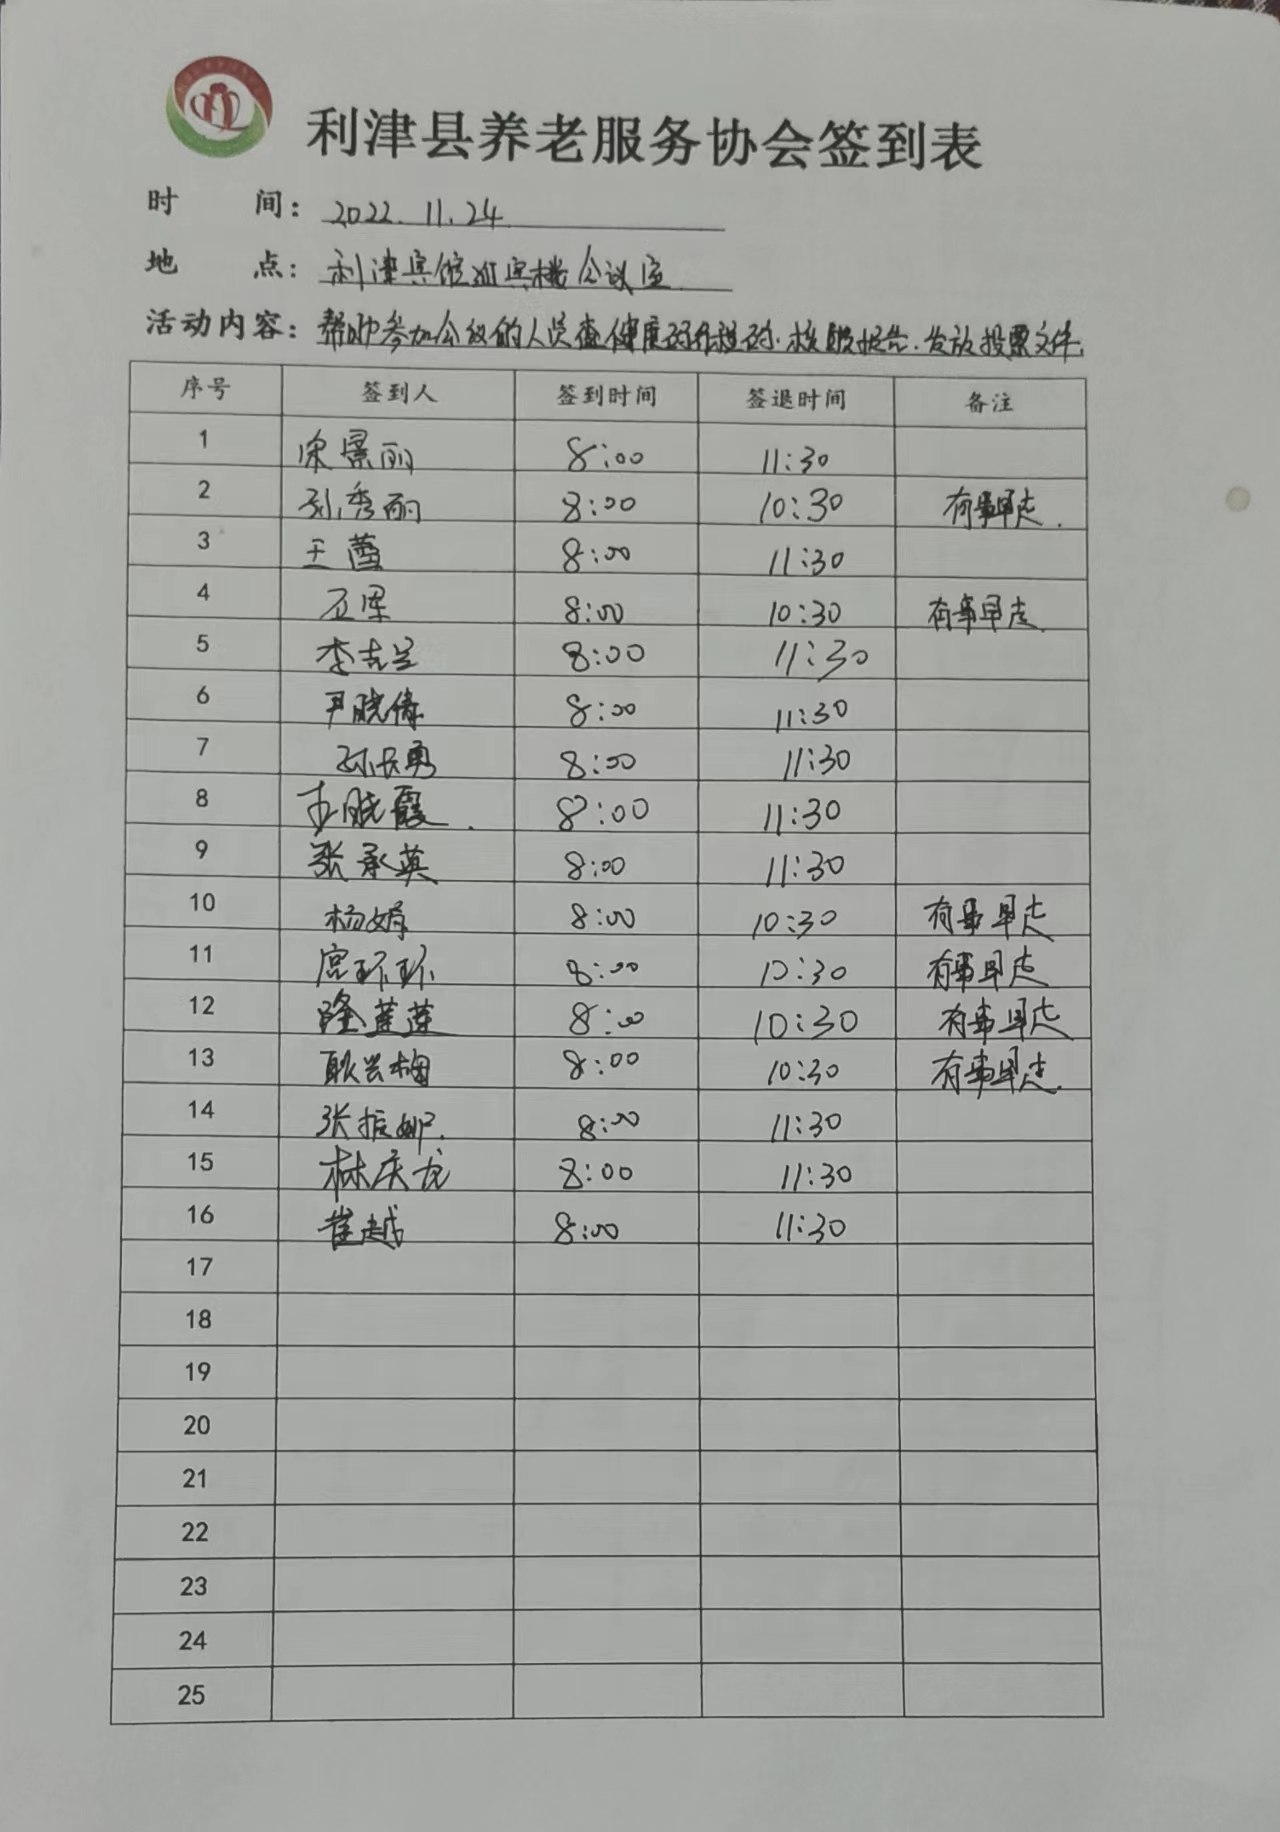 利津县养老服务协会签到表
时 间: 2022.11.24
地 点: 利津宾馆迎宾楼会议室
活动内容: 帮助参加会议的人员查健康码行程码.核酸报告.发放投票文件.
序号 签到人 签到时间 签退时间 备注
1 徐景丽 8:00 11:30
2 孙秀丽 8:00 10:30 有事早走.
3 王 8:00 11:30
4 8:00 10:30 有事早走.
5 李吉兰 8:00 11:30
6 尹晓倩 8:00 11:30
7 孙长勇 8:00 11:30
8 王晓霞. 8:00 11:30
9 张承英 8:00 11:30
10 杨娟 8:00 10:30 有事早走
11 环环 8:00 10:30 有事早走
12 隆莲莲 8:00 10:30 有事早走
13 耿兰梅 8:00 10:30 有事早走.
14 张振娜. 8:00 11:30
15 林庆龙 8:00 11:30
16 崔越 8:00 11:30
17
18
19
20
21
22
23
24
25